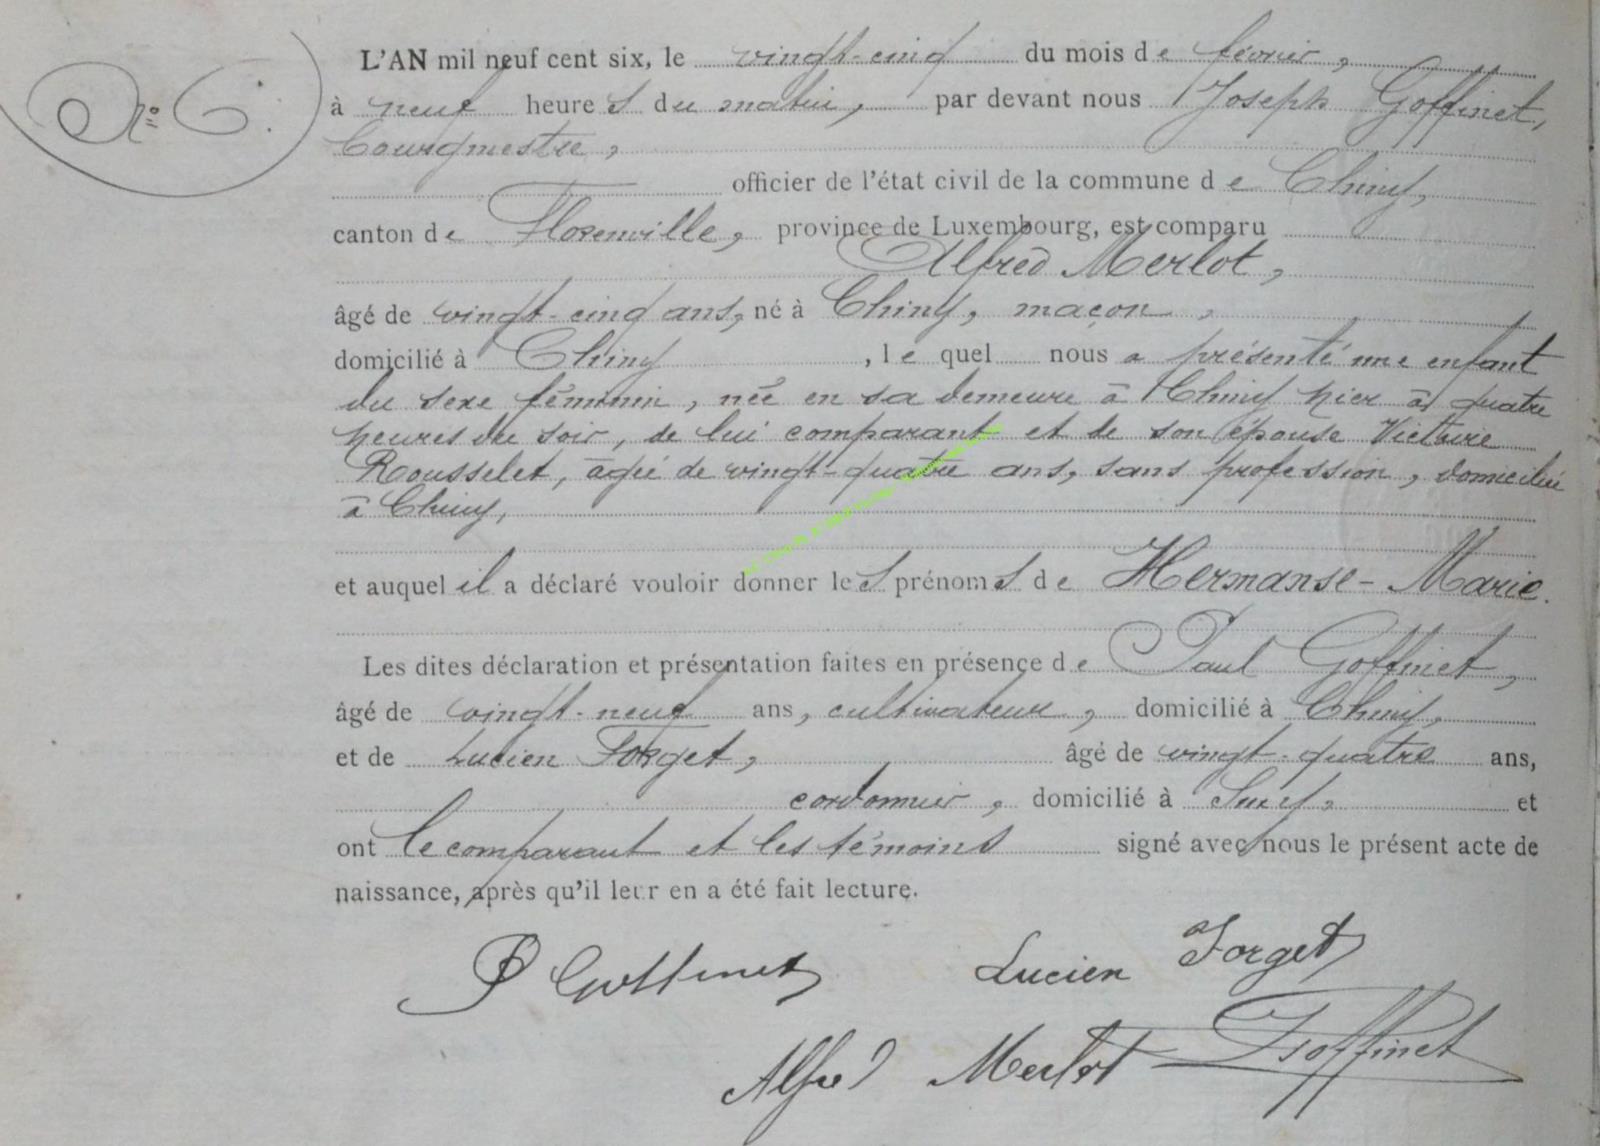 N° 6.
L'AN mil neuf cent six, le vingt-cinq du mois de février,
à neuf heures du matin, par devant nous Joseph Goffinet,
bourgmestre,
officier de l'état civil de la commune de Chiny,
canton de Florenville, province de Luxembourg, est comparu
Alfred Merlot,
âgé de vingt-cinq ans, né à Chiny, maçon,
domicilié à Chiny, lequel nous a présenté une enfant
du sexe féminin, née en sa demeure à Chiny hier à quatre
heures du soir, de lui comparant et de son épouse Victoire
Rousselet, âgée de vingt-quatre ans, sans profession, domiciliée
à Chiny,
et auquel il a déclaré vouloir donner les prénoms de Hermanse-Marie.
Les dites déclaration et présentation faites en présence de Paul Goffinet,
âgé de vingt-neuf ans, cultivateur, domicilié à Chiny,
et de Lucien Forget, âgé de vingt-quatre ans,
cordonnier, domicilié à Suxy, et
ont le comparant et les témoins signé avec nous le présent acte de
naissance, après qu'il leur en a été fait lecture.
P Goffinet Lucien Forget
Alfred Merlot J Goffinet